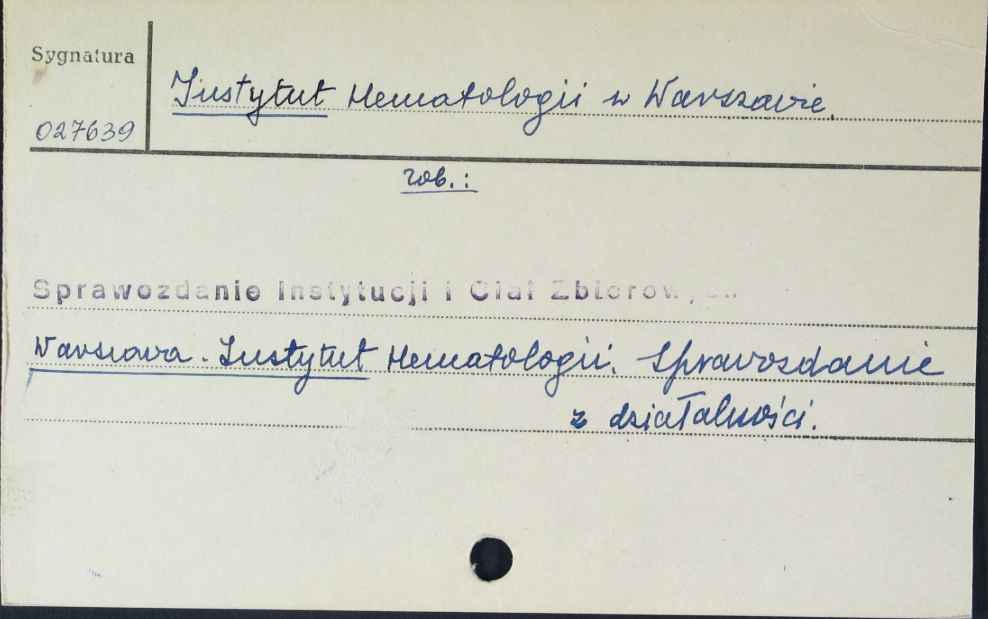 Sygnatura
Instytut Hematologii w Warszawie.
027639
zob.:
Sprawozdanie Instytucji i Ciał Zbiorowych
Warszawa. Instytut Hematologii. Sprawozdanie
z działalności.